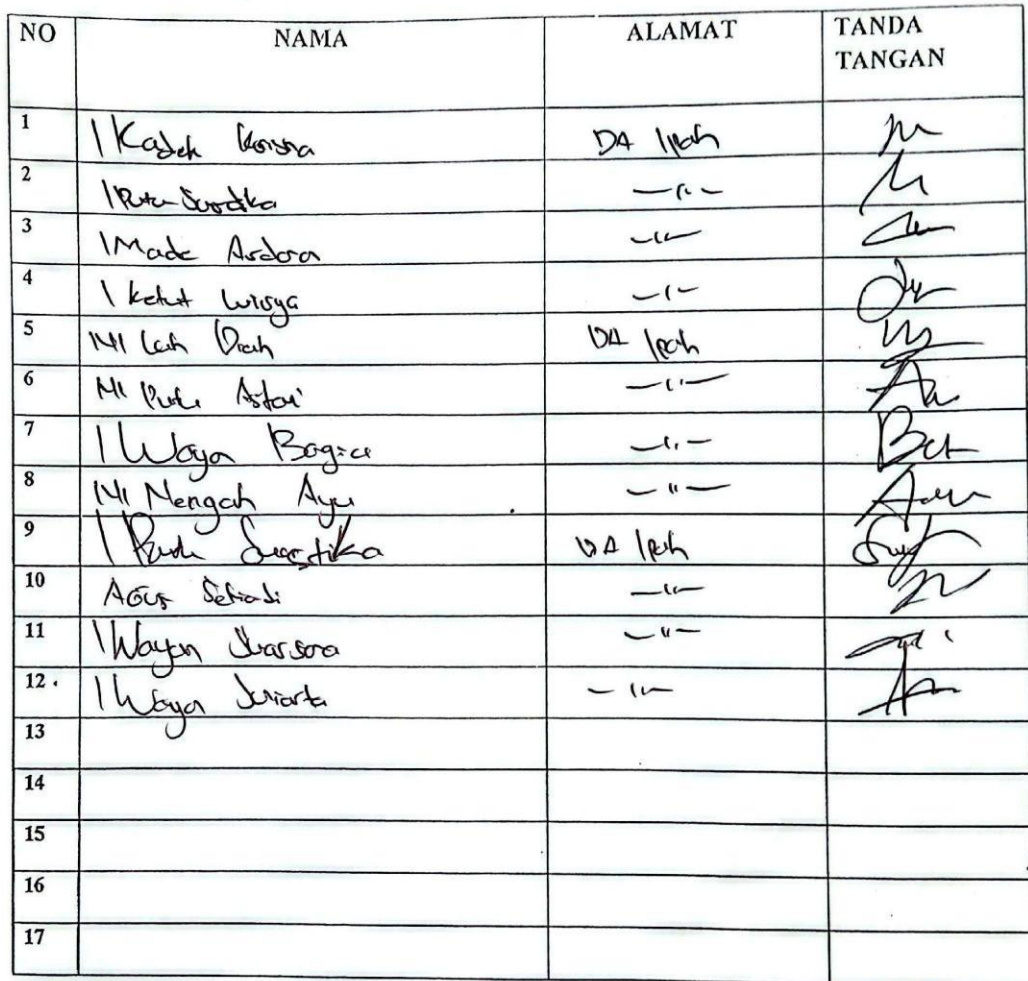 NO NAMA ALAMAT TANDA
TANGAN
1 I Kadek Krisna DA Ipah
2 I Putu Suardika —〃—
3 I Made Ardana —〃—
4 I Ketut Wirya —〃—
5 NI Luh Diah DA Ipah
6 NI Putu Astari —〃—
7 I Wayan Bagia —〃—
8 NI Nengah Ayu —〃—
9 I Putu Suastika DA Ipah
10 Agus Setiadi —〃—
11 I Wayan —〃—
12 I Wayan Suiarta —〃—
13
14
15
16
17